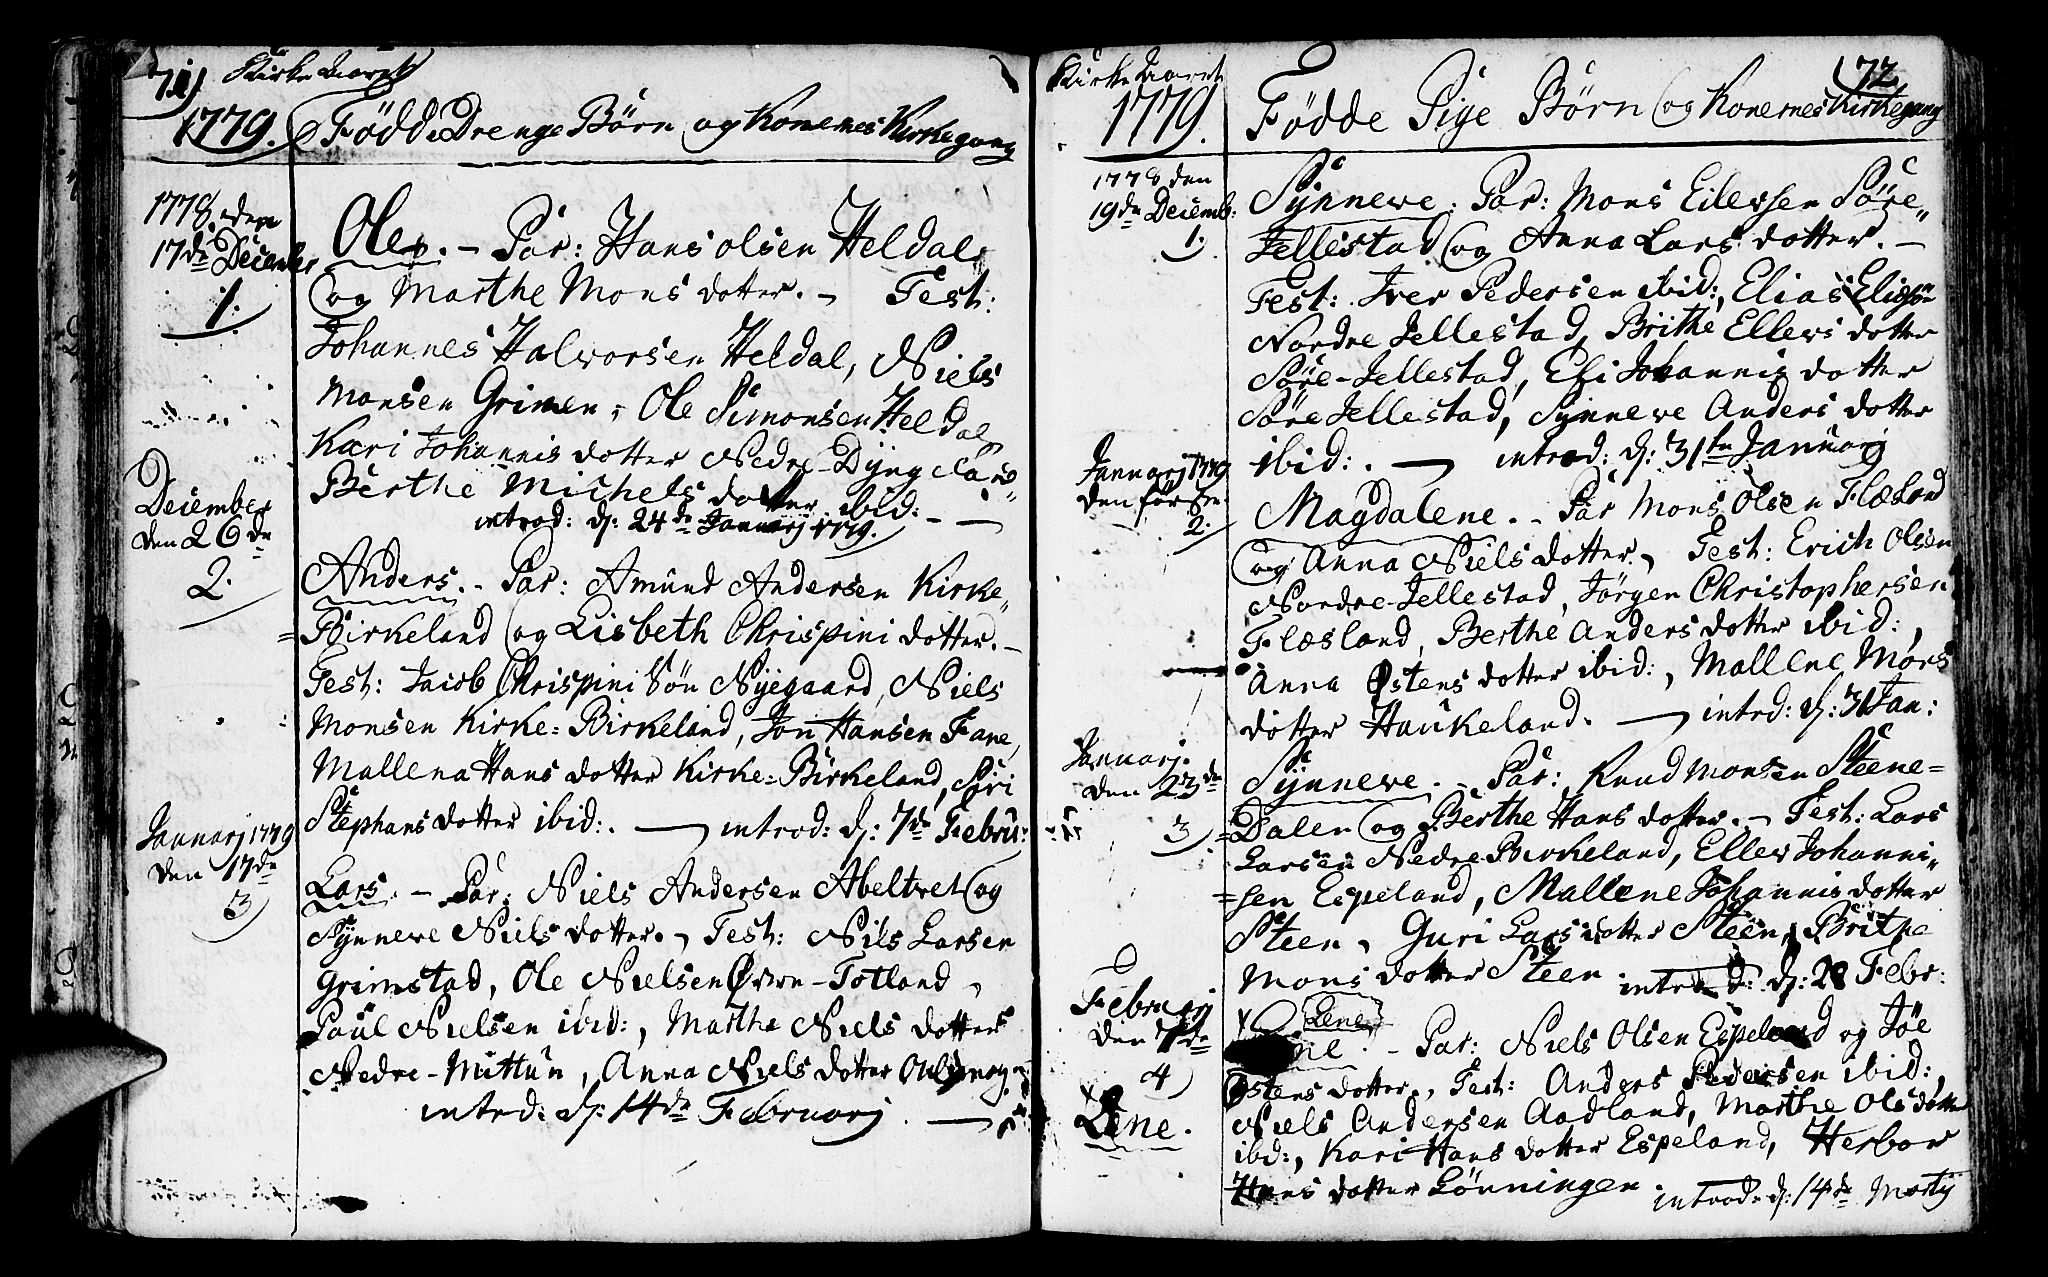 71) Kirke Aaret
1779. Födde Drenge Börn og Konernes Kirkegang
1778 den
17de Decembr
1.
Ole. - Par: Hans olsen Heldal
og Marthe Mons dotter. - Test:
Johannes Halvorsen Heldal, Niels
Monsen Grimen, Ole Simonsen Heldal
Kari Johannis dotter Nedre-Dyng
Berthe Michels dotter ibid: -
introd: d: 24de Januarj 1779.
December
den 26de
2.
Anders. - Par: Amund Andersen Kirke-
=Birkeland og Lisbeth Chrispini dotter. -
Test: Jacob Chrispini Sön Nyegaard, Niels
Monsen Kirke=Birkeland, Jon Hansen Fane,
Mallena Hans dotter Kirke=Birkeland, Siri
Stephans dotter ibid:. - introd: d: 7de Febru:
Januarj 1779
den 17de
3)
Lars. - Par: Niels Andersen Abeltvet og
Synneve Niels dotter. - Test: Nils Larsen
Grimstad, Ole Nielsen Övre-Totland,
Paul Nielsen ibid:, Marthe Niels dotter
Nedre-Mittun, Anna Niels dotter
intrd: d: 14de Februarj. -
Kirke Aaret
1779.
72
Födde Pige Börn og Konernes Kirkegang
1778 den
19de Decemb:
1.
Synneve. Par: Mons Eilersen Söre-
Jellestad og Anna Lars dotter. -
Test: Iver Pedersen ibid:, Elias Eliassen
Nordre Jellestad, Brithe Ellers dotter
Söre-Jellestad, Eli Johannis dotter
Söre Jellestad, Synneve Anders dotter
ibid:. - introd: d: 31te Januarj
Januarj 1779
den förste
2.
Magdalene. - Par Mons Olsen Flæsland
og Anna Niels dotter. - Test: Erich Olsen
Nordre-Jellestad, Jörgen Christophersen
Flæsland, Berthe Anders dotter ibid:,
Anna Östens dotter ibid:, Mallene Mons
dotter Haukeland. - intrd: d: 31 Jan:
Januarj.
den 23de
3)
Synneve. - Par: Knud Monsen Steene=
=Dalen og Berthe Hans dotter. - Test: Lars
Larsen Nedre Birkeland, Eller Johanni-
=sen Espeland, Mallene Johannis dotter
Steen, Guri Lars dotter Steen, Brithe
Mons dotter Steen intrd: d: 28 Febr:
Februarj
den 7de
4)
x
Lene.
x Lene
Par: Niels Olsen Espeland og Jöe
Östens dotter., Test: Anders Pedersen ibid:,
Niels Andersen Aadland, Marthe Ols dotter
ibd:, Kari Hans dotter Espeland, Herbor
Hans dotter Lönningen introd: d: 14de Martij